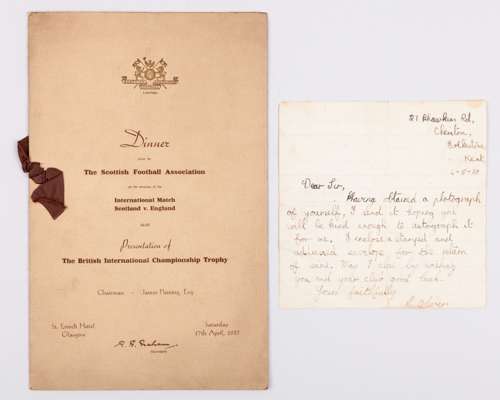 Dinner
The Scottish Football Association
on the occasion of the
International Match
Scotland v. England
and
Presentation of
The British International Championship Trophy
Chairman - James Fleming, Esq.
St. Enoch Hotel
Glasgow
Saturday
17th April, 1937
Rd,
Cheriton,
Folkestone,
Kent
Dear Sir,
Having obtained a photograph
of yourself, I send it hoping you
will be kind enough to autograph it
for me. I enclose a stamped and
addressed envelope for the return
of same. May I close in wishing
you and your club good luck.
Yours faithfully